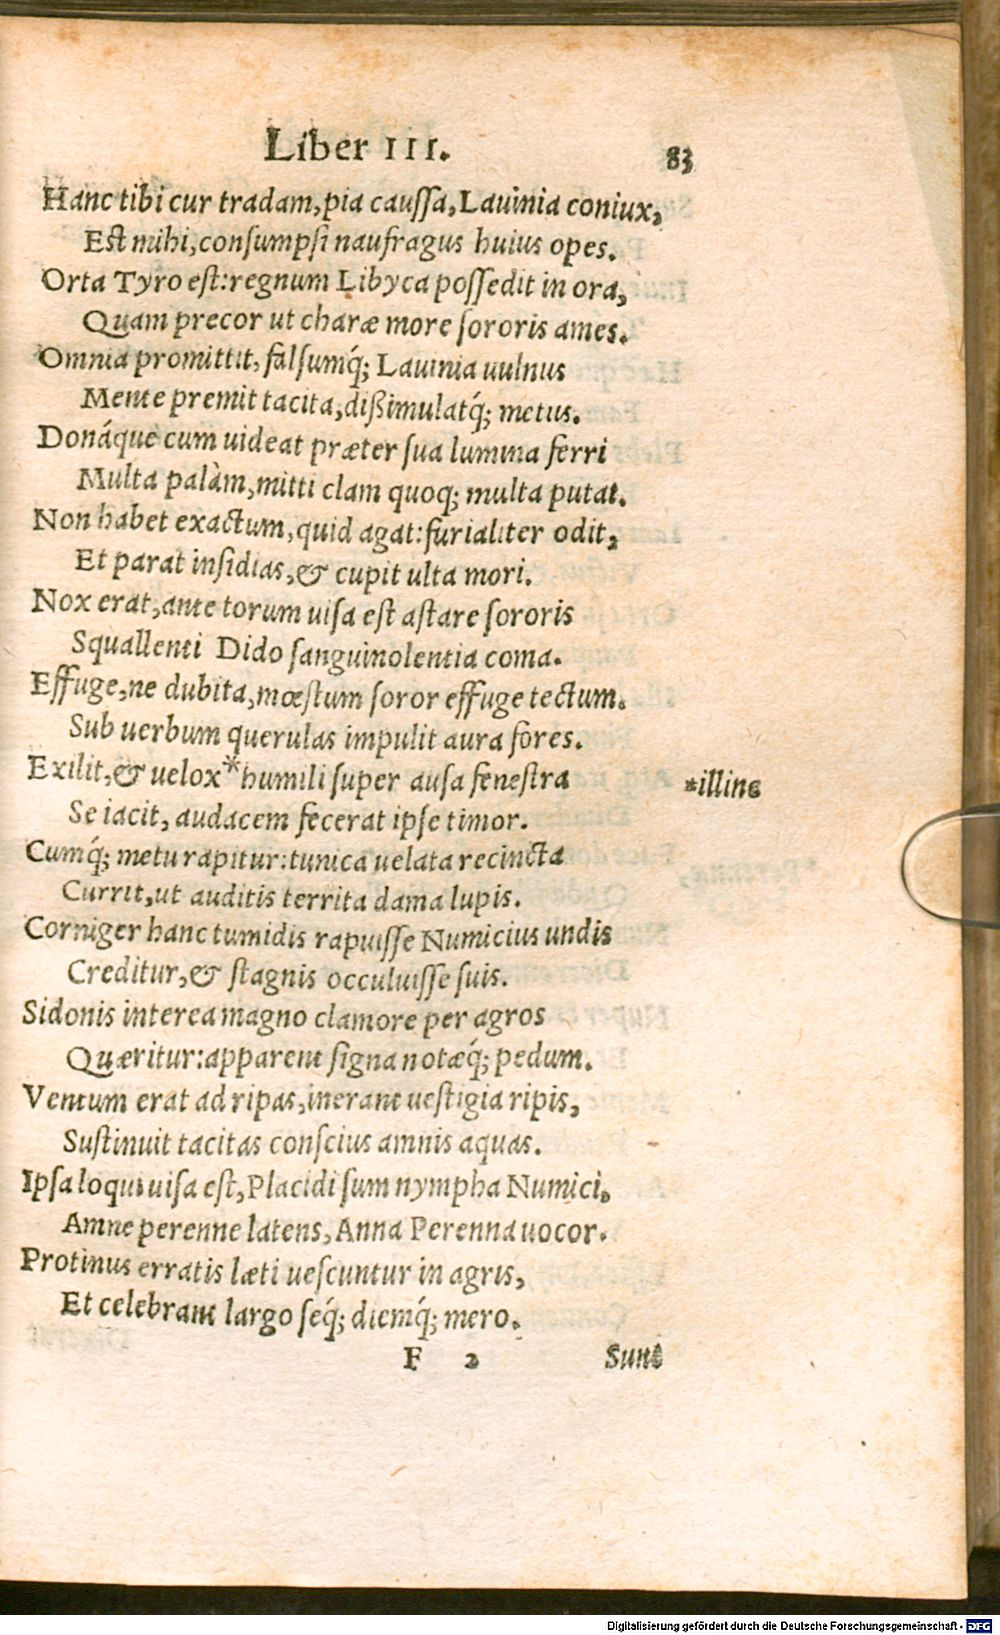 Liber III.
83
Hanc tibi cur tradam, pia caussa, Lauinia coniux,
Est mihi, consumpsi naufragus huius opes.
Orta Tyro est: regnum Libyca possedit in ora,
Quam precor ut charæ more sororis ames.
Omnia promittit, falsumq́; Lauinia uulnus
Mente premit tacita, dißimulatq́; metus.
Donáque cum uideat præter sua lumina ferri
Multa palàm, mitti clam quoq; multa putat.
Non habet exactum, quid agat: furialiter odit,
Et parat insidias, & cupit ulta mori.
Nox erat, ante torum uisa est astare sororis
Squallenti Dido sanguinolentia coma.
Effuge, ne dubita, mœstum soror effuge tectum.
Sub uerbum querulas impulit aura fores.
Exilit, & uelox * humili super ausa fenestra
*illinc
Se iacit, audacem fecerat ipse timor.
Cumq́; metu rapitur: tunica uelata recincta
Currit, ut auditis territa dama lupis.
Corniger hanc tumidis rapuisse Numicius undis
Creditur, & stagnis occuluisse suis.
Sidonis interea magno clamore per agros
Quæritur: apparent signa notæq́; pedum.
Ventum erat ad ripas, inerant uestigia ripis,
Sustinuit tacitas conscius amnis aquas.
Ipsa loqui uisa est, Placidi sum nympha Numici.
Amne perenne latens, Anna Perenna uocor.
Protinus erratis læti uescuntur in agris,
Et celebrant largo seq́; diemq́; mero.
F 2
Sunt
Digitalisierung gefördert durch die Deutsche Forschungsgemeinschaft - DFG